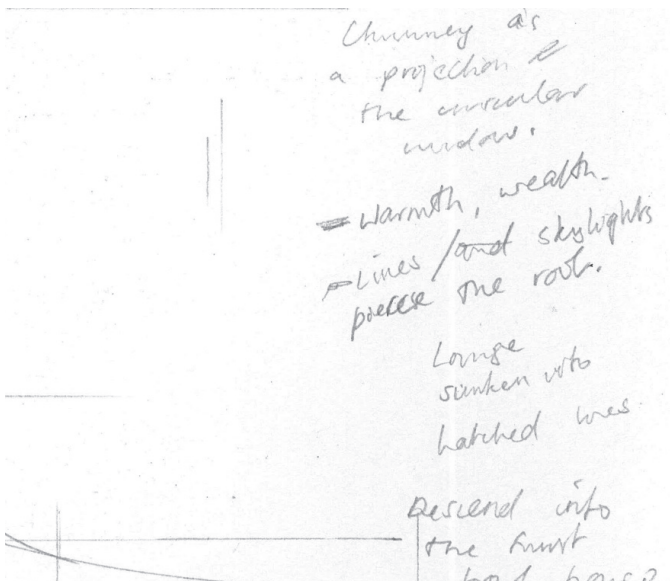 Chimney as
a projection of
the circular
window.
- Warmth, wealth.
- Lines / and skylights
pierce the roof.
Lounge
sunken into
hatched lines
Descend into
the